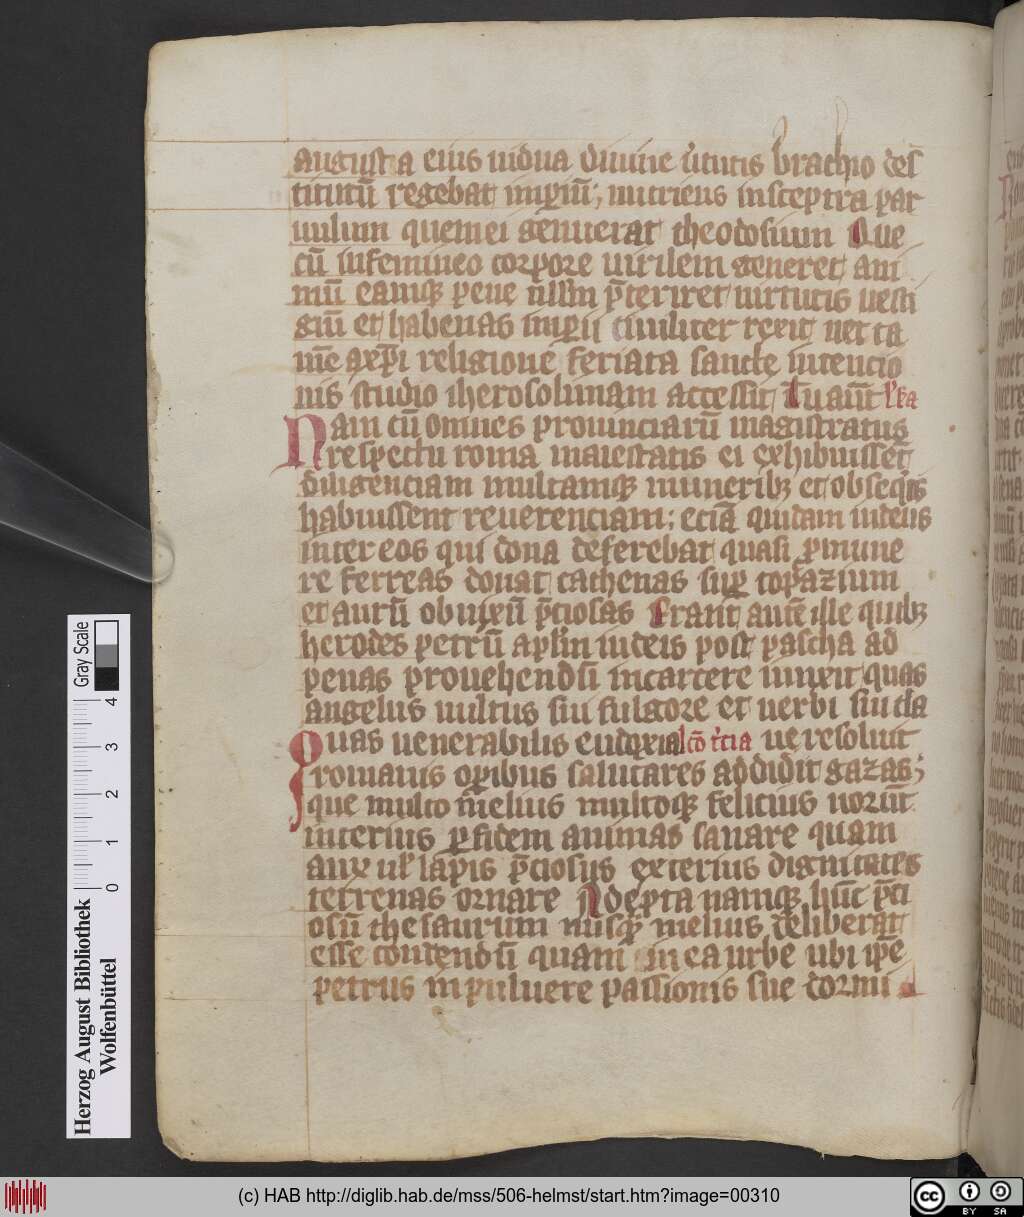 augusta eius uidua diuine ūtutis brachio des
titutū regebat imꝑiū; nutriens insceptra par
uulum quem ei genuerat theodosium Que
cū infemineo corpore uirilem generet ani
mū eamqꝫ pene nllm p̄teriret uirtutis uesti
giū et habenas imꝑii ciuiliter rexit nec ta
mē a xp̄i religione feriata sancte intencio
nis studio iherosolimam accessit
Nam cū omnes prouinciarū magistratus
respectu rome maiestatis ei exhibuisset
diligenciam multamqꝫ muneribꝫ et obsequiis
habuissent reuerenciam; eciā quidam iudeus
inter eos qui dona deferebat quasi ꝓ mune
re ferreas donat cathenas suꝑ topazium
et aurū obrizū p̄ciosas Erant autē ille quibꝫ
herodes petrū aplm iudeis post pascha ad
penas prouehendū incarcere iunxit quas
angelus uultus sui fulgore et uerbi sui cla
Quas uenerabilis eudoxia lcō t̄cia ue resoluit
romanis opibus salutares addidit gazas;
que multo melius multoqꝫ felicius norūt
interius ꝑ fidem animas sanare quam
aux ul lapis p̄ciosus exterius dignitates
terrenas ornare Adepta namqꝫ hūc p̄ci
osū thesaurum nusqꝫ melius deliberat
esse condendū quam in ea urbe ubi ip̄e
petrus in puluere passionis sue dormi
Gray Scale
0 1 2 3 4
Herzog August Bibliothek
Wolfenbüttel
(c) HAB http://diglib.hab.de/mss/506-helmst/start.htm?image=00310
cc BY SA